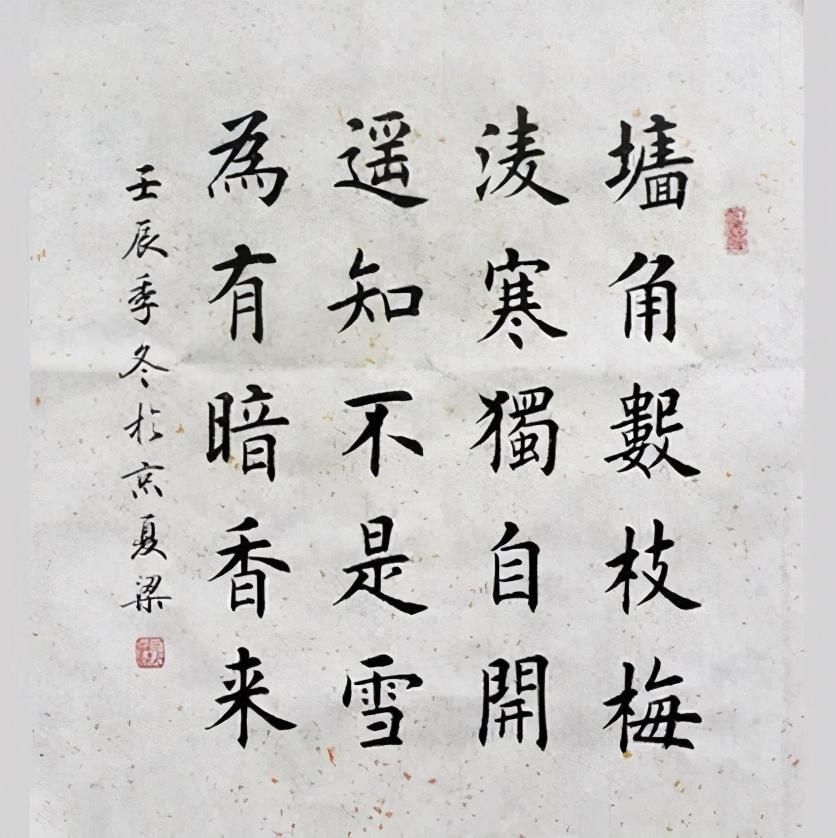 墻角數枝梅
淩寒獨自開
遥知不是雪
為有暗香来
壬辰季冬於京夏梁